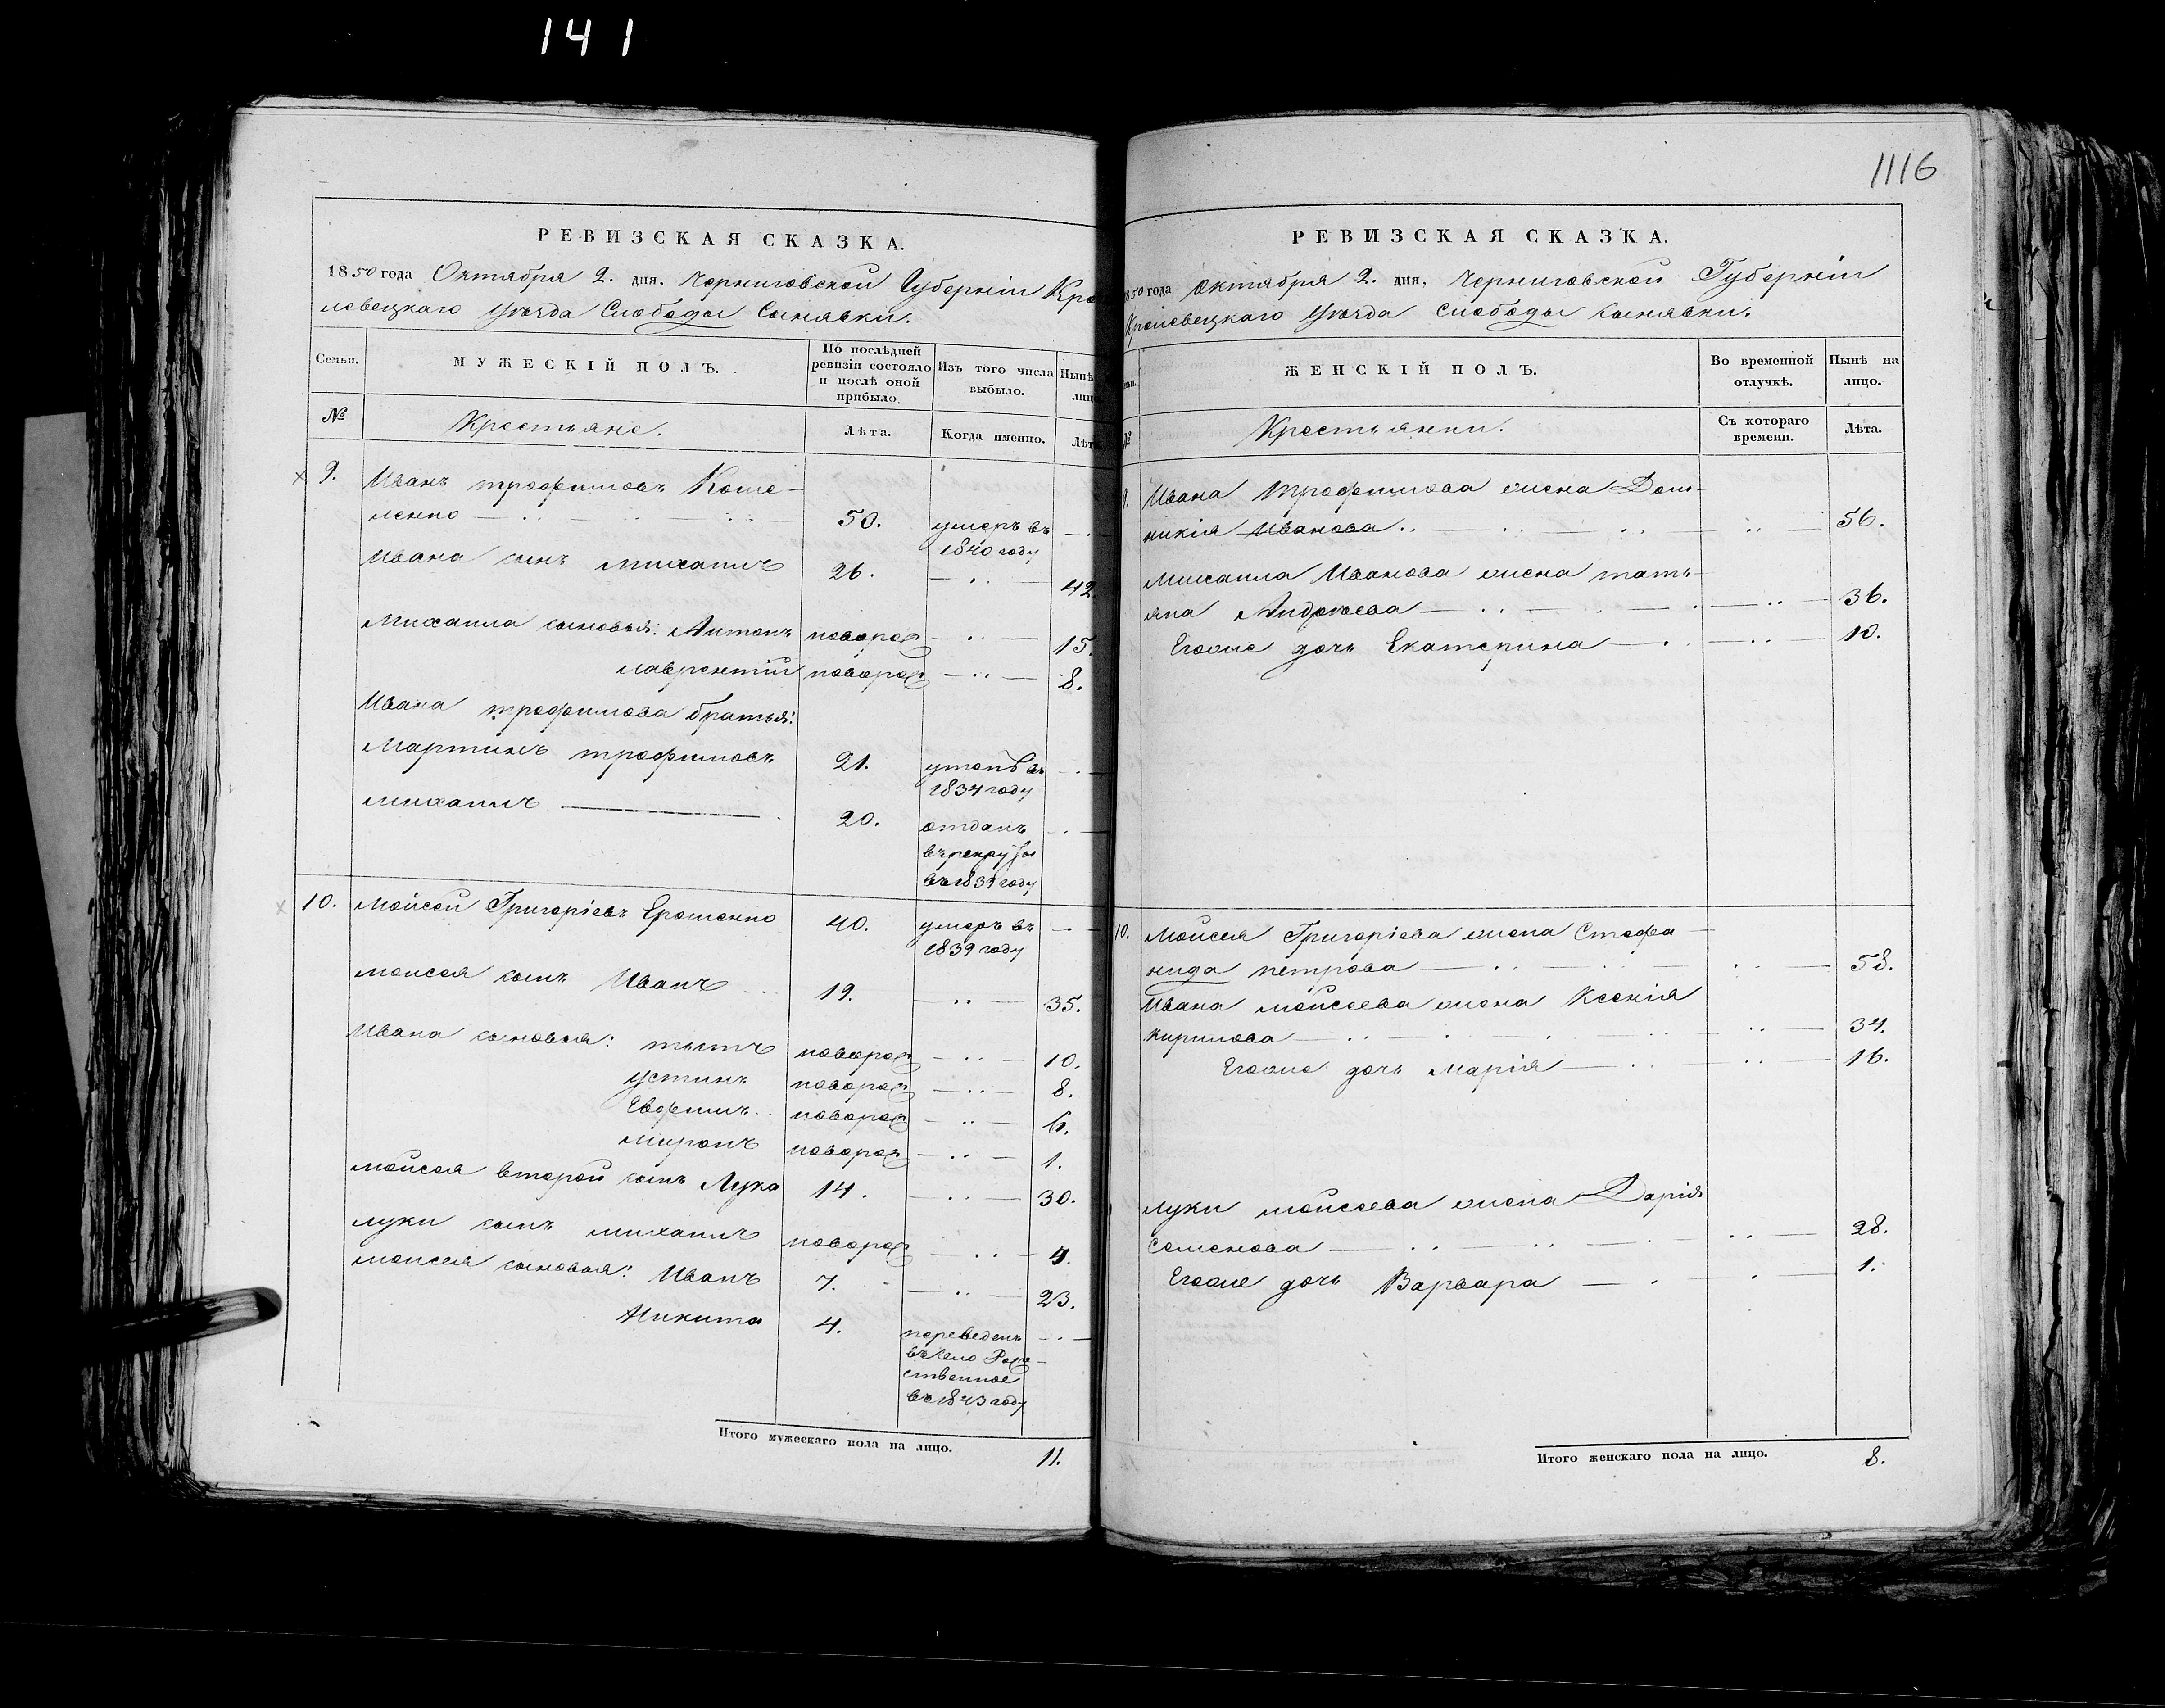 141
1116
РЕВИЗСКАЯ СКАЗКА.
1850 года Октября 2. дня. Черниговской Губерніи Кро
левецкаго уѣзда Слободы Сынявки.
Семьи.
МУЖЕСКІЙ ПОЛЪ.
По послѣдней ревизіи состояло и послѣ оной прибыло.
Изъ того числа выбыло.
Нынѣ лицо
№
Крестьяне.
Лѣта.
Когда именно.
Лѣт
9. Иванъ Трофимовъ Коше-
ленко 50. умеръ въ
1840 году
Ивана сынъ Михаилъ 26. 42.
Михаила сыновья: Антонъ новорож 15.
Лаврентій новорож 8.
Ивана Трофимова братья:
Мартинъ Трофимовъ 21.
1834 году
Михаилъ 20. отданъ
въ рекруты
въ 1839 году
10. Мойсей Григоріевъ Ерошенко 40. умеръ въ
1839 году
Моисея сынъ Иванъ 19. 35.
Ивана сыновья: новорож 10.
Устинъ новорож 8.
Евфимъ новорож 6.
Миронъ новорож 1.
Мойсея второй сынъ Лука 14. 30.
Луки сынъ Михаилъ новорож 4.
Моисея сыновья: Иванъ 7. 23.
Никита 4. переведенъ
въ село Рож-
ственное
въ 1843 году
Итого мужескаго пола на лицо. 11.
РЕВИЗСКАЯ СКАЗКА.
850 года Октября 2. дня. Черниговской Губерніи
Кролевецкаго уѣзда Слободы Сынявки.
ЖЕНСКІЙ ПОЛЪ.
Во временной отлучкѣ.
Нынѣ на лицо.
№
Крестьянки.
Съ котораго времени.
Лѣта.
Ивана Трофимова жена Дом-
никія Иванова 56.
Михаила Иванова жена Тать-
яна Андреева 36.
Егоже дочь Екатерина 10.
10. Моисея Григоріева жена Стефа-
нида Петрова 58.
Ивана Мойсеева жена Ксенія
Кирилова 34.
Егоже дочь Марія 16.
Луки Мойсеева жена Дарія
Семенова 28.
Егоже дочь Варвара 1.
Итого женскаго пола на лицо. 8.